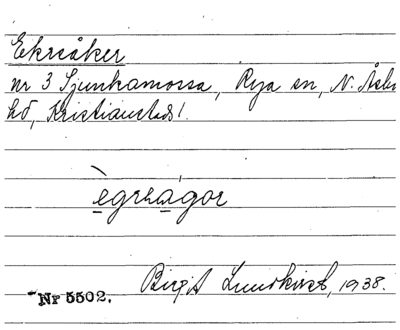 Ekreåker
nr 3 Sjunkamossa, Rya sn, N. Åsbo
hd, Kristianstads l.
ègreágor
Birgit Lundkvist, 1938.
Nr 5502.